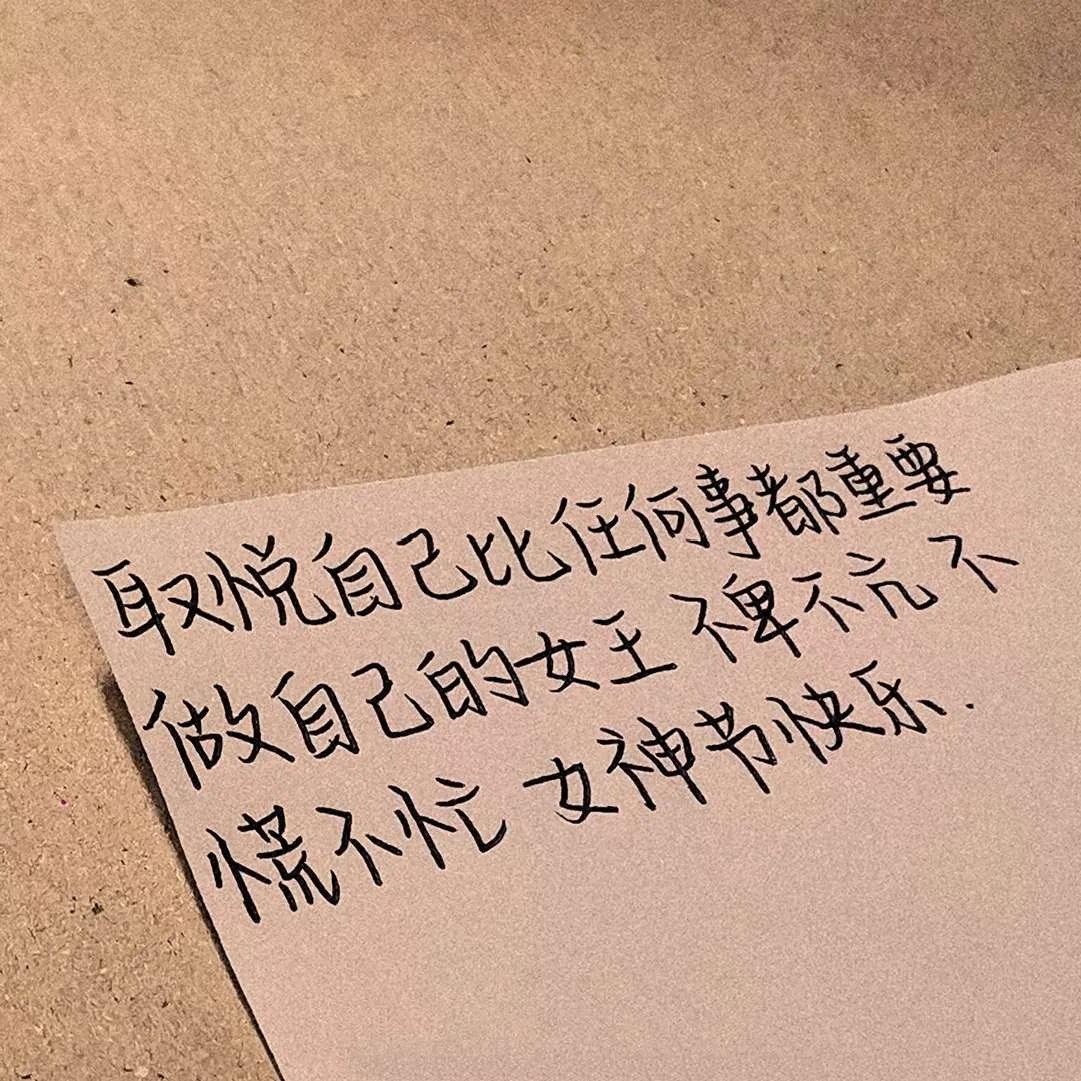 取悦自己比任何事都重要
做自己的女王 不卑不亢 不
慌不忙 女神节快乐.